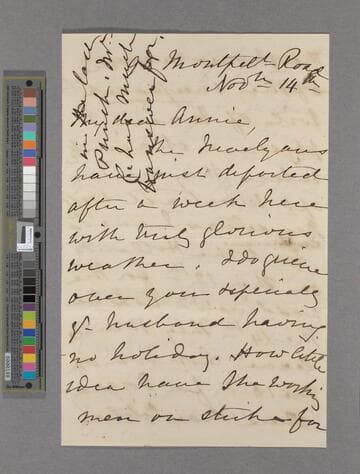 Montpelr Road
Novbr 14th
My dear Annie,
The Trevelyans
have just departed
after a week here
with truly glorious
weather. I do grieve
over you especially
yr husband having
no holiday. How little
idea have the working
men on strike for
in the last
Punch. Mr
much
to answer for.